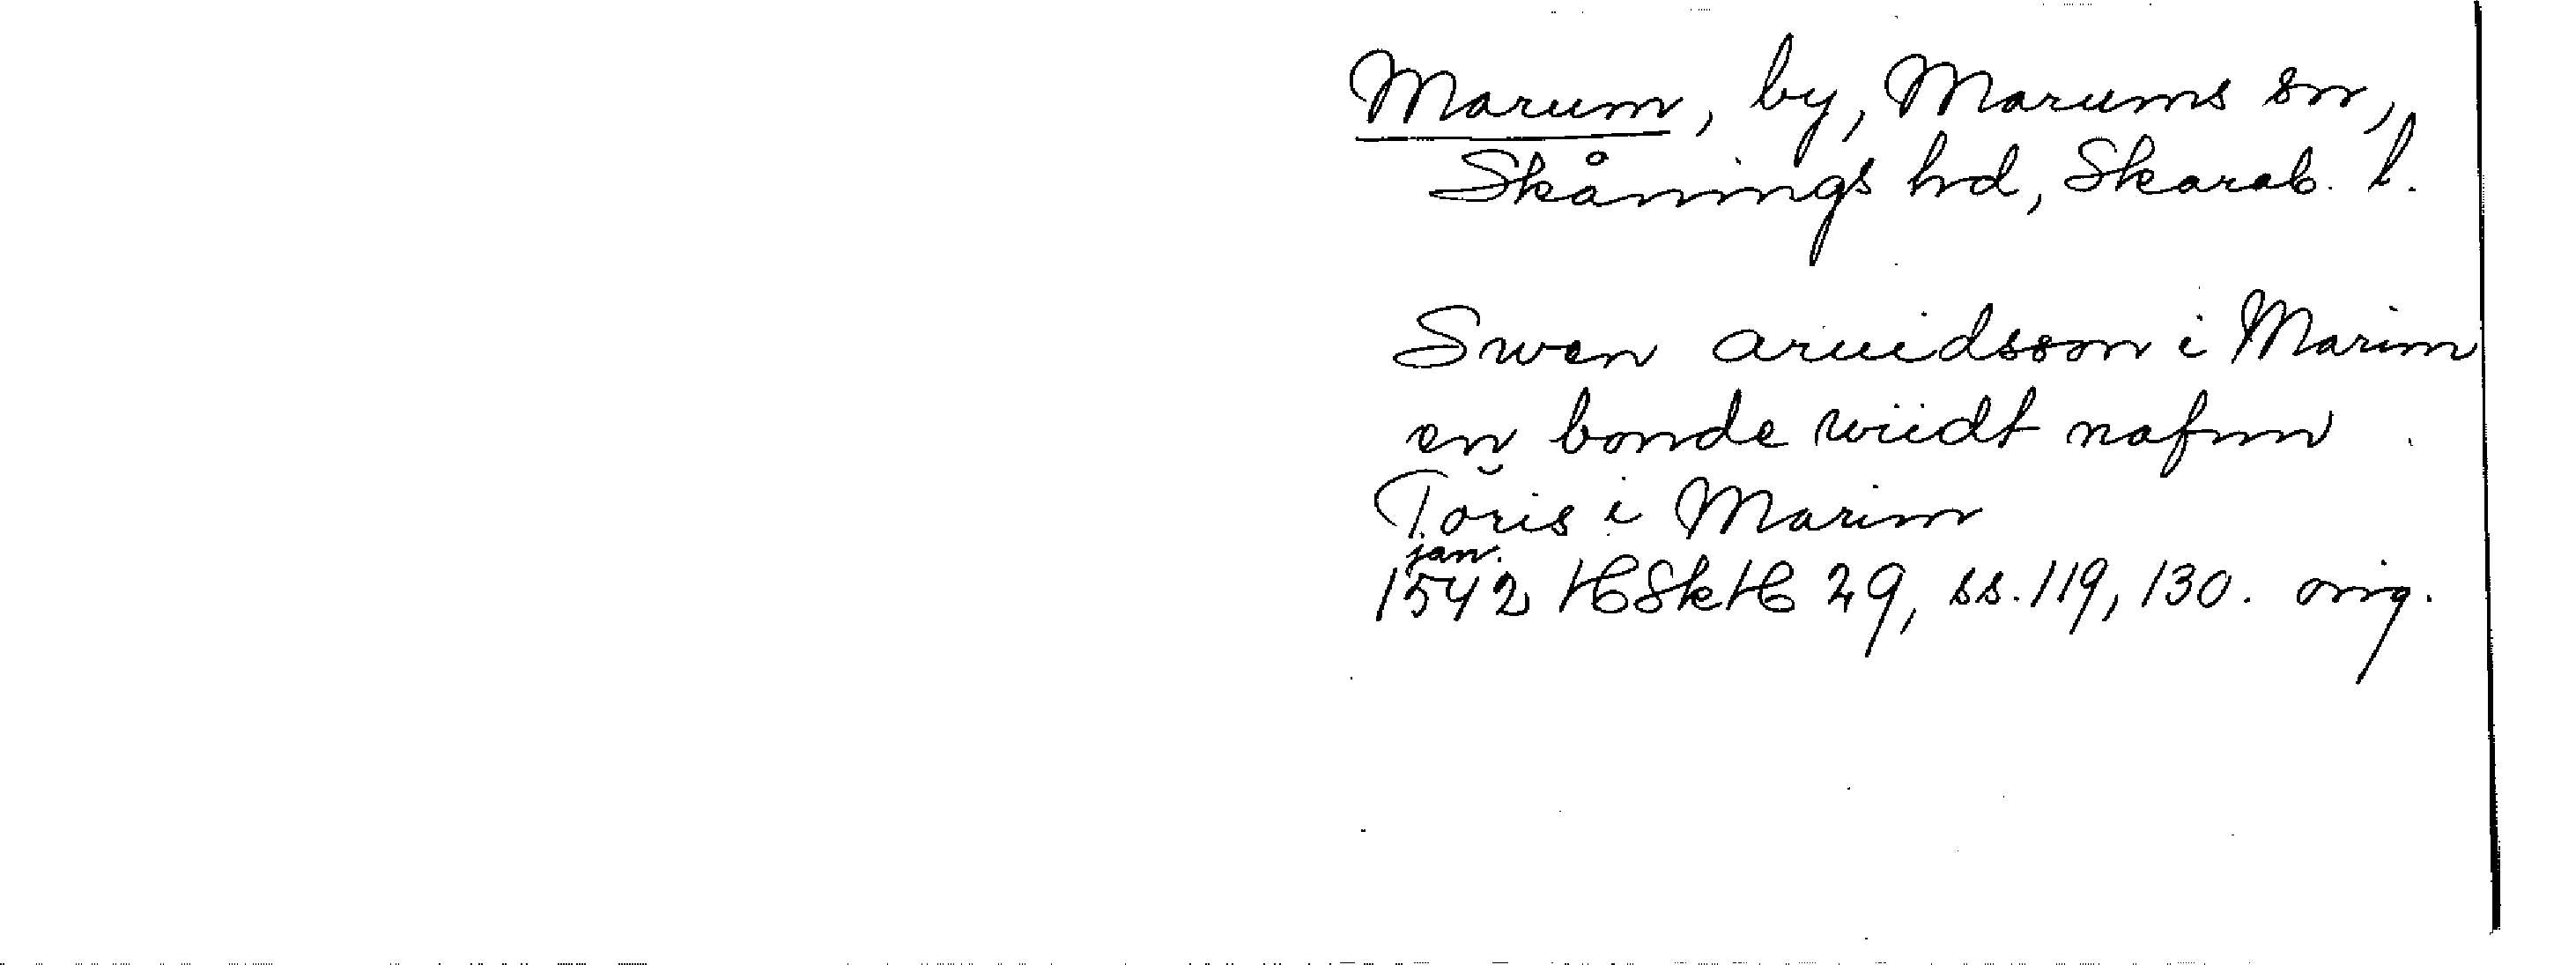 Marum, by, Marums sn,
Skånings hd, Skarab. l.
Swen aruidsson i Marim
en bonde wiidt nafnn
Töris i Marim
jan.
1542 HSkH 29, ss. 119, 130. orig.